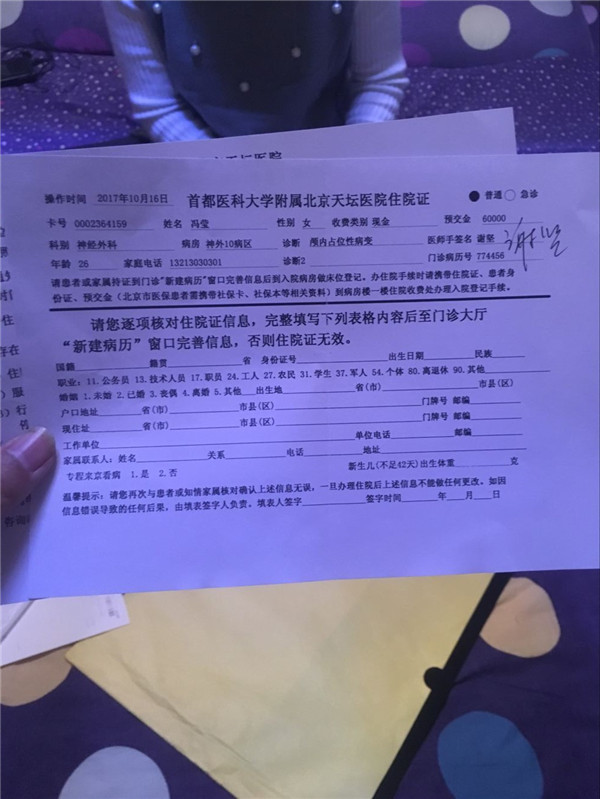 操作时间 2017年10月16日 首都医科大学附属北京天坛医院住院证 普通 急诊
卡号 0002364159 姓名 冯莹 性别 女 收费类别 现金 预交金 60000
科别 神经外科 病房 神外10病区 诊断 颅内占位性病变 医师手签名 谢坚 谢坚
年龄 26 家庭电话 13213030301 诊断2 门诊病历号 774456
请患者或家属持证到门诊"新建病历"窗口完善信息后到入院病房做床位登记。办住院手续时请携带住院证、患者身
份证、预交金（北京市医保患者需携带社保卡、社保本等相关资料）到病房楼一楼住院收费处办理入院登记手续。
请您逐项核对住院证信息，完整填写下列表格内容后至门诊大厅
“新建病历”窗口完善信息，否则住院证无效。
国籍 籍贯 省 身份证号 出生日期 民族
职业：11.公务员 13.技术人员 17.职员 24.工人 27.农民 31.学生 37.军人 54.个体 80.离退休 90.其他
婚姻 1.未婚 2.已婚 3.丧偶 4.离婚 5.其他 出生地 省(市) 市县(区)
户口地址 省(市) 市县(区) 门牌号 邮编
现住址 省(市) 市县(区) 门牌号 邮编
工作单位 单位电话 邮编
家属联系人：姓名 关系 电话 地址
专程来京看病 1.是 2.否 新生儿(不足42天)出生体重 克
温馨提示：请您再次与患者或知情家属核对确认上述信息无误，一旦办理住院后上述信息不能做任何更改。如因
信息错误导致的任何后果，由填表签字人负责。填表人签字 签字时间 年 月 日